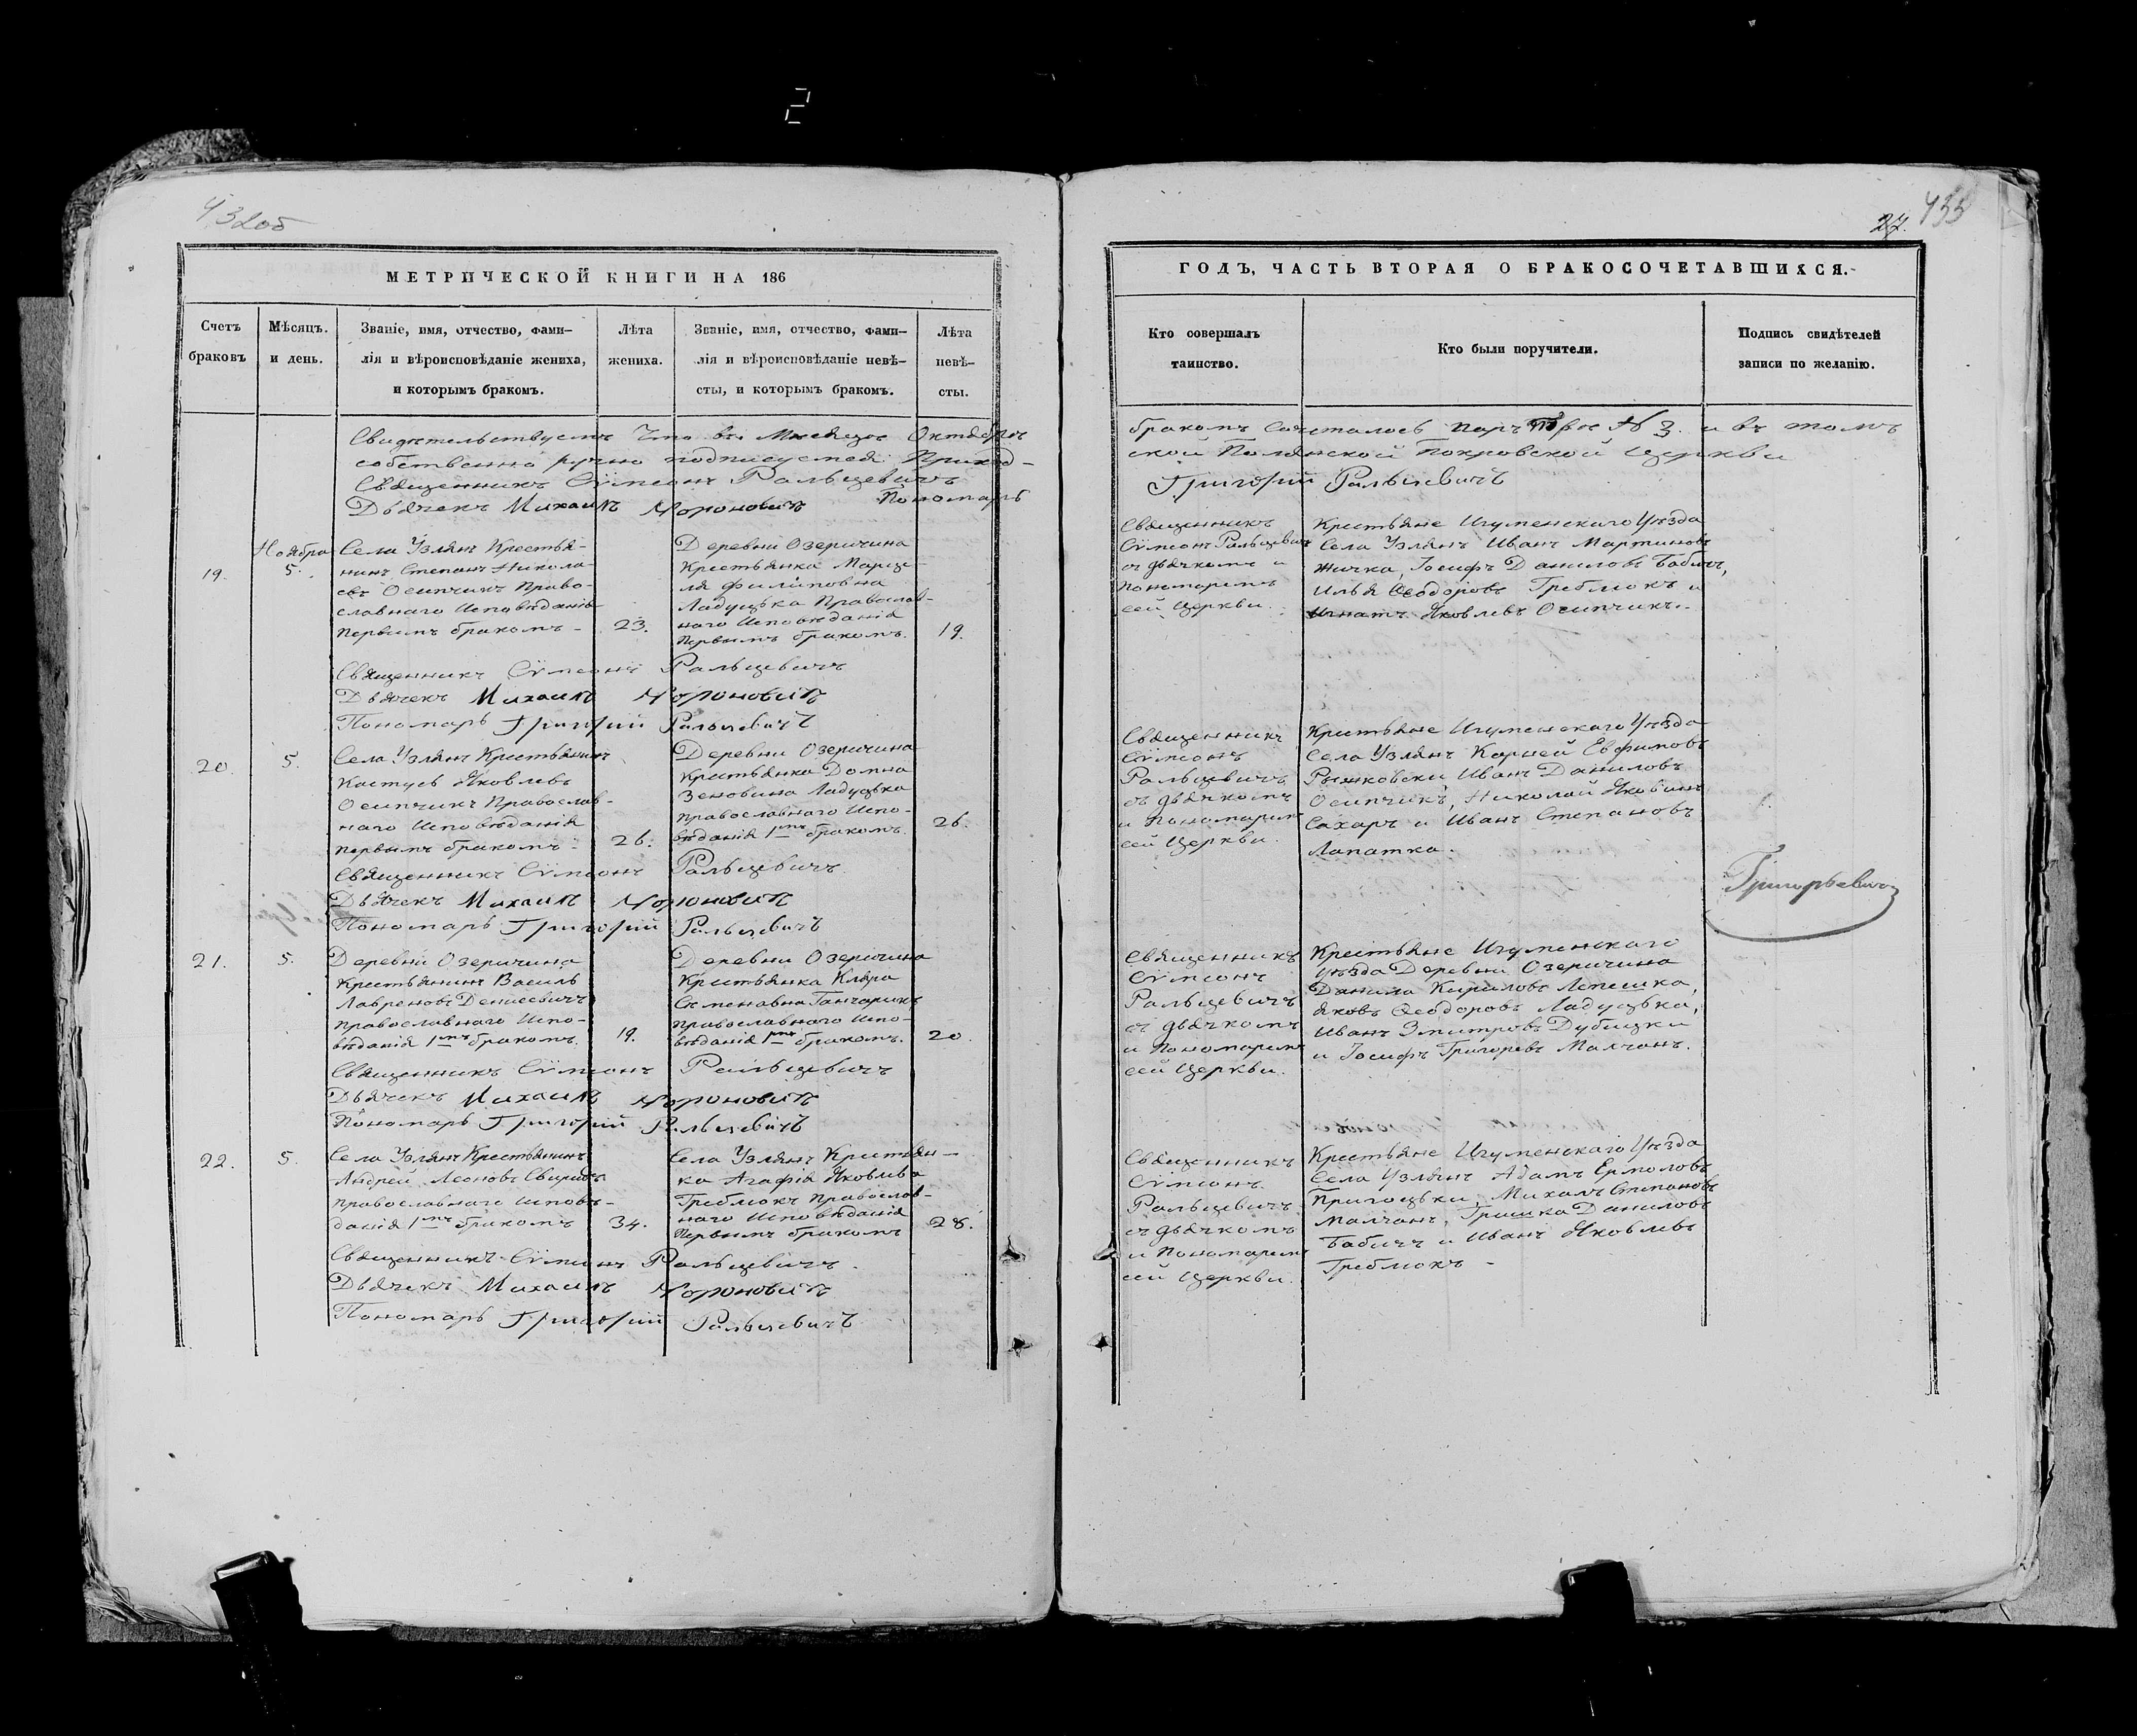 2
432об
МЕТРИЧЕСКОЙ КНИГИ НА 186
Счетъ браковъ
Мѣсяцъ. и день.
Званіе, имя, отчество, фами–
лія и вѣроисповѣданіе жениха,
и которымъ бракомъ.
Лѣта жениха.
Званіе, имя, отчество, фами–
лія и вѣроисповѣданіе невѣ–
сты, и которымъ бракомъ.
Лѣта невѣ–
сты.
Свидѣтельствуемъ что въ Месяцѣ Октябрѣ
собственно ручно подписуемся: Приход–
Священникъ Сѵмеонъ Ральцевичъ
Дьячекъ Михаилъ Пономарь
19.
Ноября
5.
Села Узлянъ Крестья–
нинъ Степанъ Никола–
евъ Осипчикъ Право–
славнаго Исповѣданія
первымъ бракомъ –
23.
Деревни Озеричина
Крестьянка
Филиповна
Ладуцька Православ–
наго Исповѣданія
первымъ бракомъ.
19.
Священникъ Сѵмеонъ Ральцевичъ
Дьячекъ Михаилъ
Пономарь Григорій Ральцевичъ
20.
5.
Села Узлянъ Крестьянинъ
Кастусь Яковлевъ
Осипчикъ Православ–
наго Исповѣданія
первымъ бракомъ –
26.
Деревни Озеричина
Крестьянка Домна
Зеновина Ладуцька
православнаго Испо–
вѣданія 1мъ бракомъ.
26.
Священникъ Сѵмеонъ Ральцевичъ
Дьячекъ Михаилъ
Пономарь Григорій Ральцевичъ
21.
5.
Деревни Озеричина
Крестьянинъ Василь
Лавреновъ Денисевичъ
православнаго Испо–
вѣданія 1мъ бракомъ.
19.
Деревни Озеричина
Крестьянка
Ганчарикъ
православнаго Испо–
вѣданія 1мъ бракомъ.
20.
Священникъ Сѵмеонъ Ральцевичъ
Дьячекъ Михаилъ
Пономарь Григорій Ральцевичъ
22.
5.
Села Узлянъ Крестьянинъ
Андрей Леоновъ
православнаго Исповѣ–
данія 1мъ бракомъ
34.
Села Узлянъ Крестьян–
ка Агафія Яковлева
Греблюкъ Православ–
наго Исповѣданія
Первымъ бракомъ
28.
Священникъ Сѵмеонъ Ральцевичъ.
Дьячекъ Михаилъ
Пономарь Григорій Ральцевичъ
27. 433
ГОДЪ, ЧАСТЬ ВТОРАЯ О БРАКОСОЧЕТАВШИХСЯ.
Кто совершалъ
таинство.
Кто были поручители.
Подпись свидѣтелей
записи по желанію.
бракомъ сочеталось паръ № 3. и въ томъ
ской Полянской Покровской Церкви
Григорій Ральцевичъ
Священникъ
Сѵмеонъ Ральцевичъ
съ дьячкомъ и
пономаремъ
сей Церкви.
Крестьяне Игуменскаго Уѣзда
Села Узлянъ Иванъ Мартиновъ
Жичка, Іосифъ Даниловъ Бабичъ,
Илья Ѳеодоровъ Греблюкъ и
Игнатъ Яковлевъ Осипчикъ.
Священникъ
Сѵмеонъ
Ральцевичъ
съ дьячкомъ
и Пономаремъ
сей Церкви.
Крестьяне Игуменскаго Уѣзда
Села Узлянъ Корней Евфимовъ
Рынковски Иванъ Даниловъ
Осипчикъ, Николай
Сахаръ и Иванъ Степановъ
Лапатка.
Григорьевичъ
Священникъ
Сѵмеонъ
Ральцевичъ
съ дьячкомъ
и Пономаремъ
сей Церкви.
Крестьяне Игуменскаго
Уѣзда Деревни Озеричина
Данила Кириловъ Лепешка,
Яковъ Ѳеодоровъ Ладуцька,
Иванъ Змитровъ Дубицки
и Іосифъ Григоревъ Малчанъ.
Священникъ
Сѵмеонъ
Ральцевичъ
съ дьячкомъ
и Пономаремъ
сей Церкви.
Крестьяне Игуменскаго Уѣзда
Села Узлянъ Адамъ Ермоловъ
Михалъ Степановъ
Малчанъ, Гришка Даниловъ
Бабичъ и Иванъ Яковлевъ
Греблюкъ –